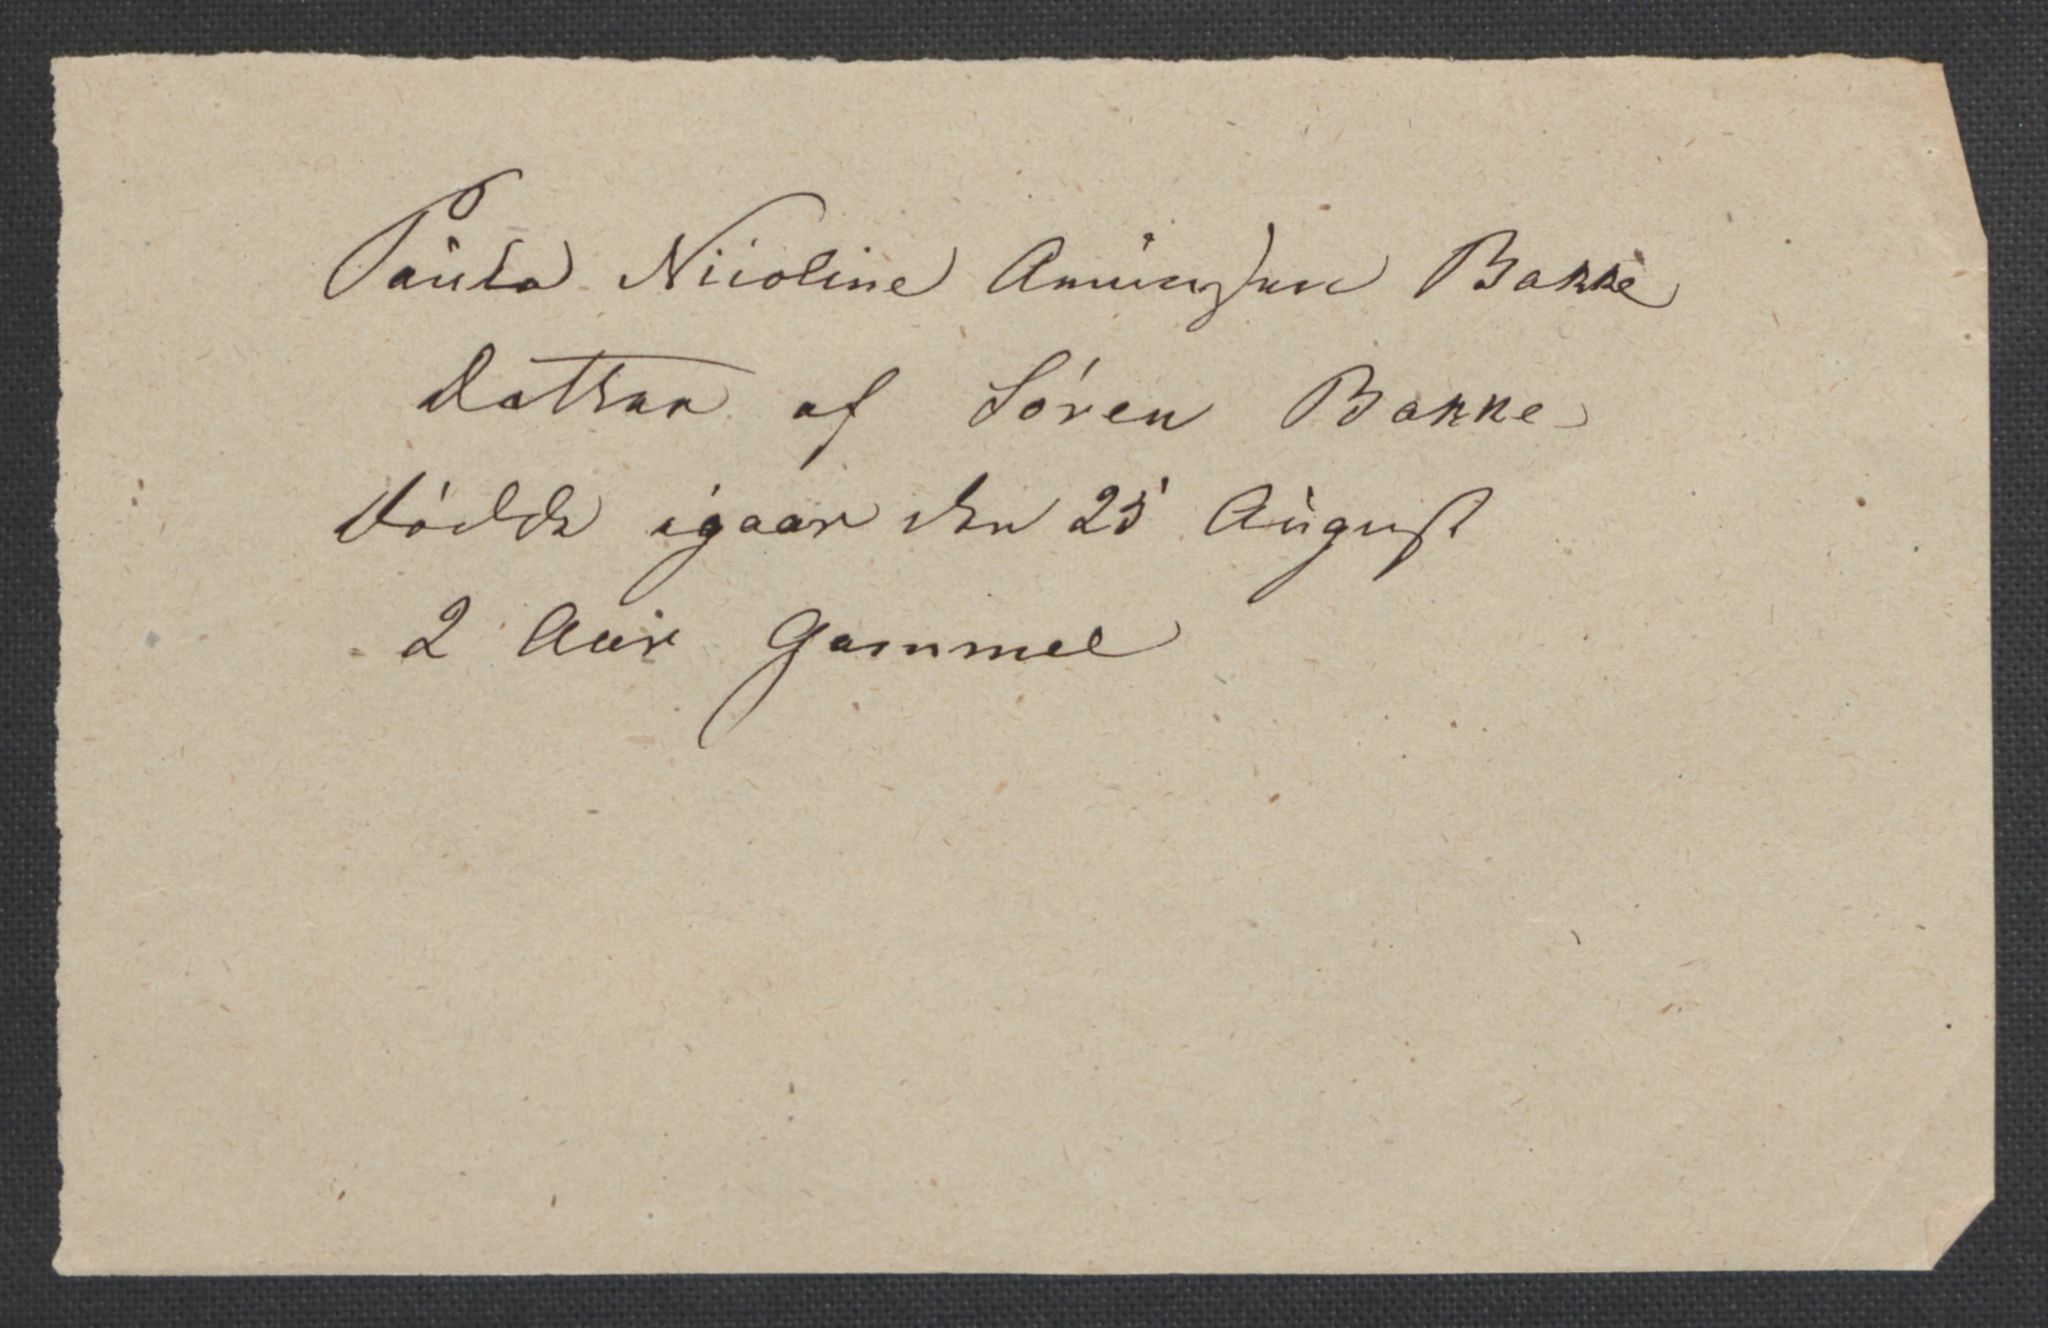 Paula Nicoline Amundsen Bakke
Datter af Søren Bakke
Døde igaar den 25 August
2 Aar Gammel